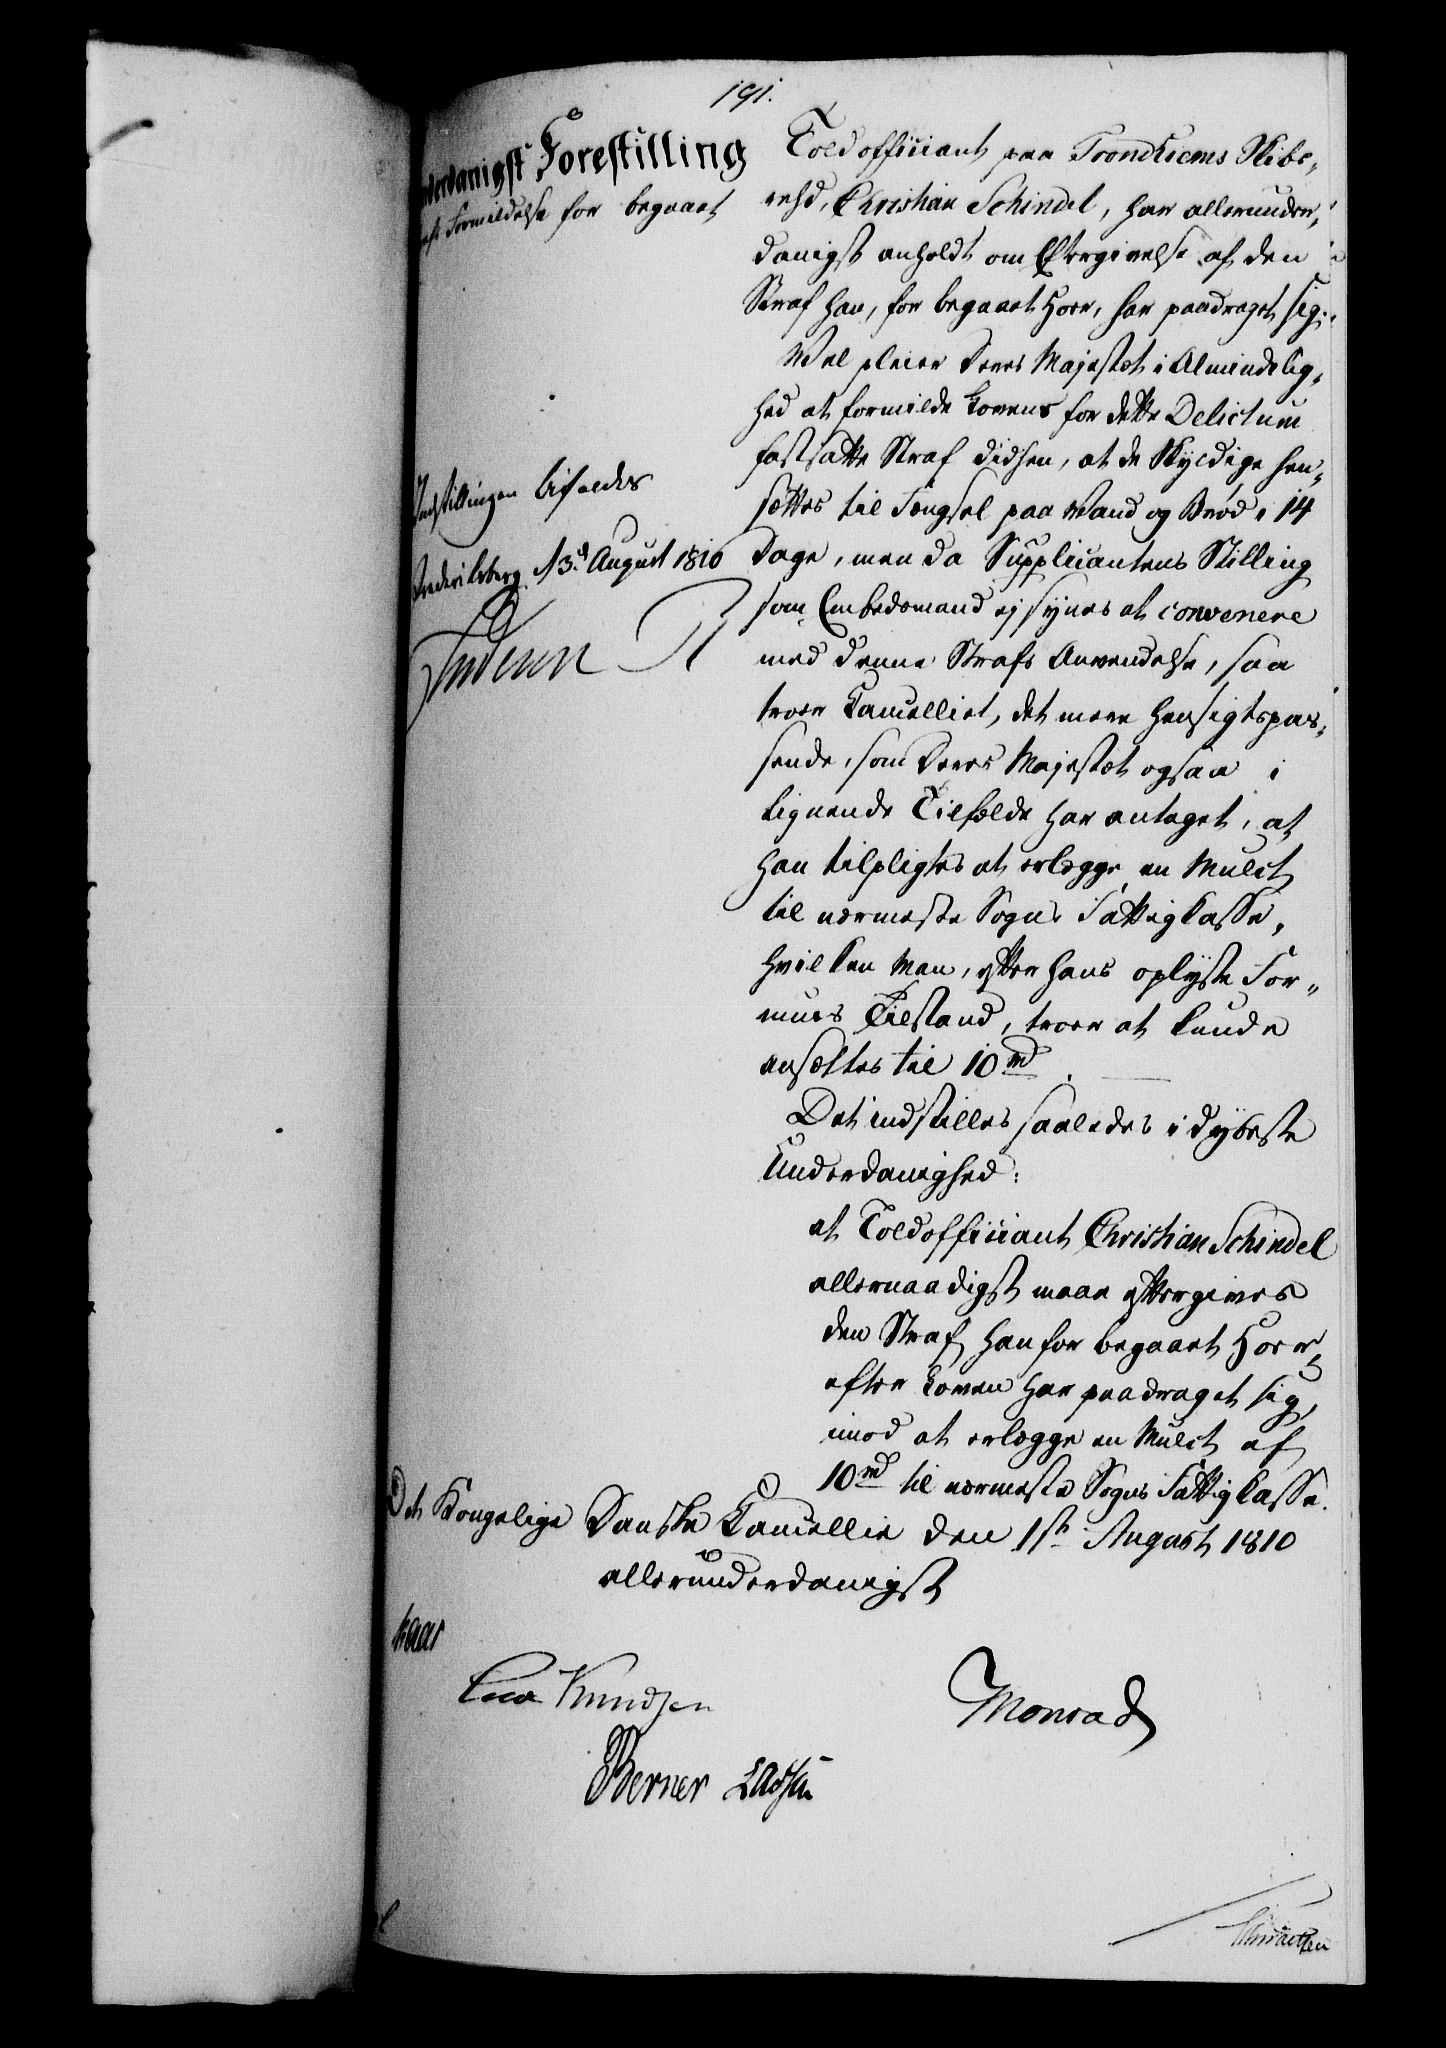 191.
Forestilling
Formildelse for begaaet
Toldofficiant paa Trondhiems Skibs,
rehd, Christian Schindel, har allerunder,
danigst anholdt om Eftergivelse af den
Straf han, for begaaet Hoer, har paadraget sig.
Vel pleier Deres Majestæt i Almindelig,
hed at formilde Lovens for dette Delictum
fastsatte Straf didhen, at de Skyldige hen,
sættes til Fængsel paa Vand og Brød i 14
Dage, men da Supplicantens Stilling
som Embedsmand ej synes at convenere
med denne Strafs Anvendelse, saa
troer Cancelliet, det mere hensigtspas,
sende, som Deres Majestæt ogsaa i
lignende Tilfælde har antaget, at
han tilpligtes at erlægge en Mulct
til nærmeste Sogns Fattigkasse,
hvilken man, efter hans oplyste For,,
mues Tilstand, troer at kunde
ansættes til 10 rd.
Det indstilles saaledes i dybeste
Underdanighed:
at Toldofficiant Christian Schindel
allernaadigst maae eftergives
den Straf han for begaaet Hoer,
efter Loven har paadraget sig,
imod at erlægge en Mulct af
10 rd til nærmeste Sogns Fattigkasse.
Indstillingen bifaldes
Frederiksberg d 3d August 1810
Frederik R
Det Kongelige Danske Cancellie den 1ste August 1810
allerunderdanigst
Kaas
Knudsen
Monrad
Berner Lassen